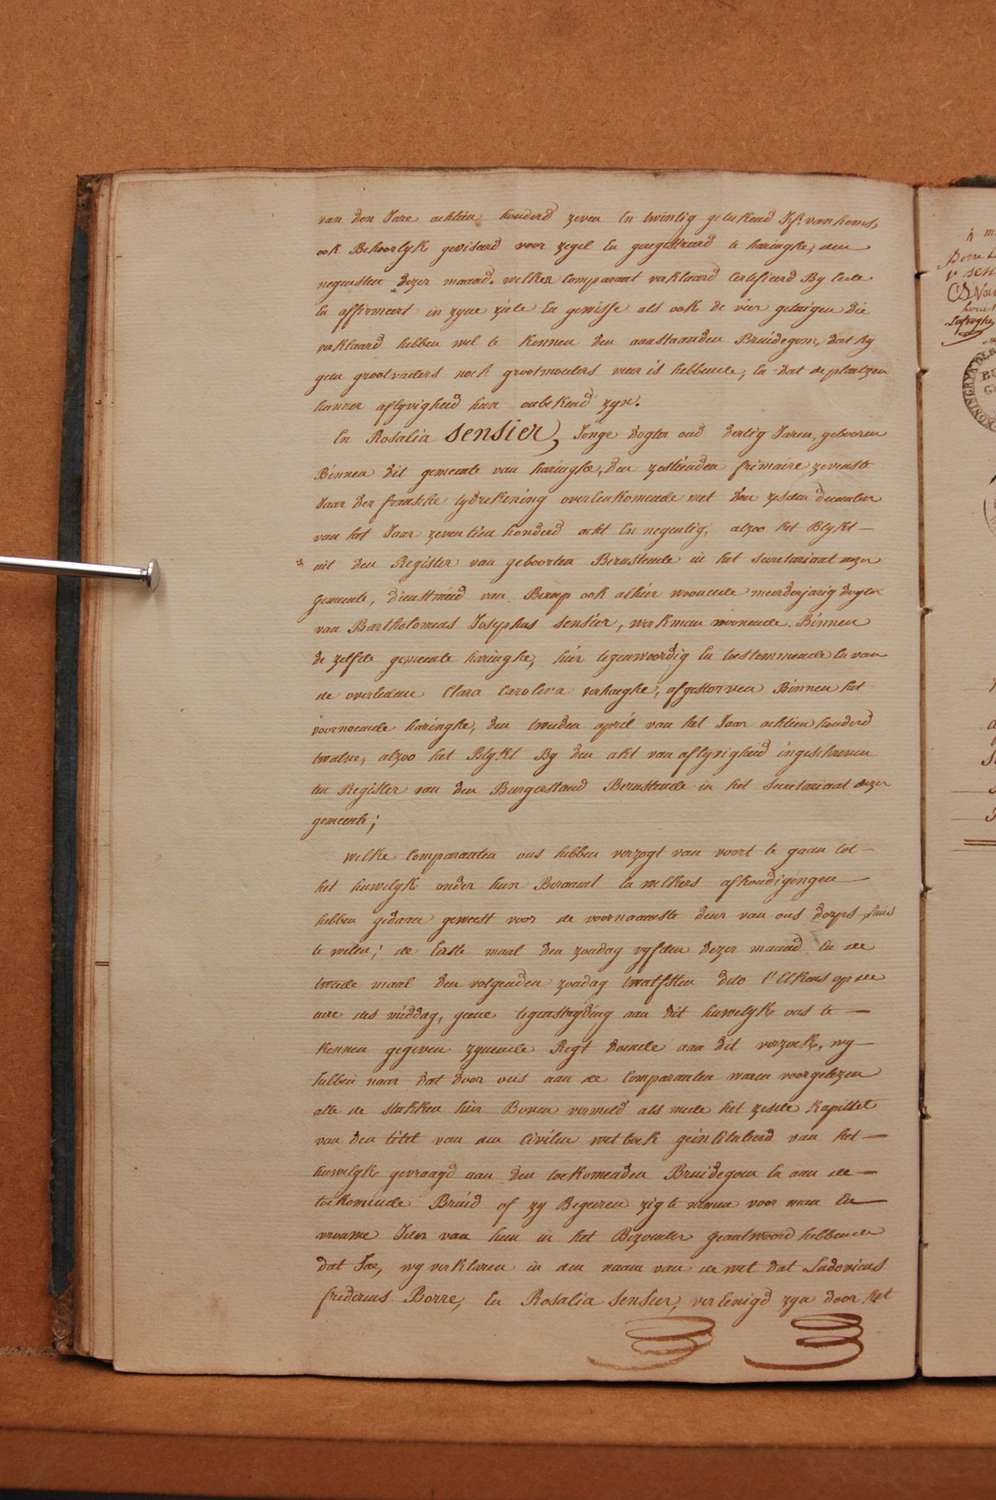 van den Jare achtien honderd zeven en twintig getekend
ook Behoorlyk geviseerd voor zegel en geregistreerd te haringhe, den
negensten dezer maand. welken Comparant verklaard Certifieerd By eede
en affirmeert in zyne ziele en gewisse als ook de vier getuigen die
verklaard hebben wel te kennen den aanstaanden Bruidegom, dat hy
geen grootvaders noch grootmoeders meer is hebbende, en dat de plaatzen
hunner aflyvigheid hun onbekend zyn.
En Rosalia Sensier, Jonge dogter oud dertig Jaren, gebooren
Binnen dit gemeente van haringhe, den zestienden frimaire zevenste
Jaar der fransche tydrekening overeenkomende met den zesden december
van het Jaar zeventien honderd acht en negentig, alzoo het Blykt
uit den Register van geboorten Berustende in het secretariaat onzer
Gemeente, dienstmeid van Beroep ook alhier woonende meerderjarig dogter
van Bartholomeus Josephus Sensier, werkman woonende Binnen
de zelfde gemeente haringhe, hier tegenwoordig en toestemmende en van
de overledene Clara Carolina verhaeghe, afgestorven Binnen het
voornoemde haringhe, den tweeden april van het Jaar achtien honderd
twalve, alzoo het Blykt By den akt van aflyvigheid ingeschreven
ten Register van den Burgerstand Berustende in het secretariaat onzer
gemeente;
welke Comparanten ons hebben verzogt van voort te gaan tot
het huwelyk onder hun Beraamt en welkers afkondigingen
hebben gedaen geweest voor de voornaemste deur van ons dorps huis
te weten; de Eerste maal den zondag vyfden dezer maand en de
tweede maal den volgenden zondag twalfsten dito t'Elkens op den
ure des middag, geene tegenstryding aan dit huwelyk ons te
kennen gegeven zynende Regt doende aan dit verzoek, wy
hebben naar dat door ons aan de Comparanten waren voorgelezen
alle de stukken hier Boven vermeld als mede het zesde Kapittel
van den titel van den Civilen wetboek geintituleerd van het
huwelyk gevraagd aan den toekomenden Bruidegom en aan de
toekomende Bruid of zy Begeeren zig te nemen voor man En
vrouwe Ider van hun in het Bezonder geantwoord hebbende
dat Jae, wy verklaren in den naam van de wet dat Ludovicus
fredericus Borre, En Rosalia Sensier, verEenigd zyn door het